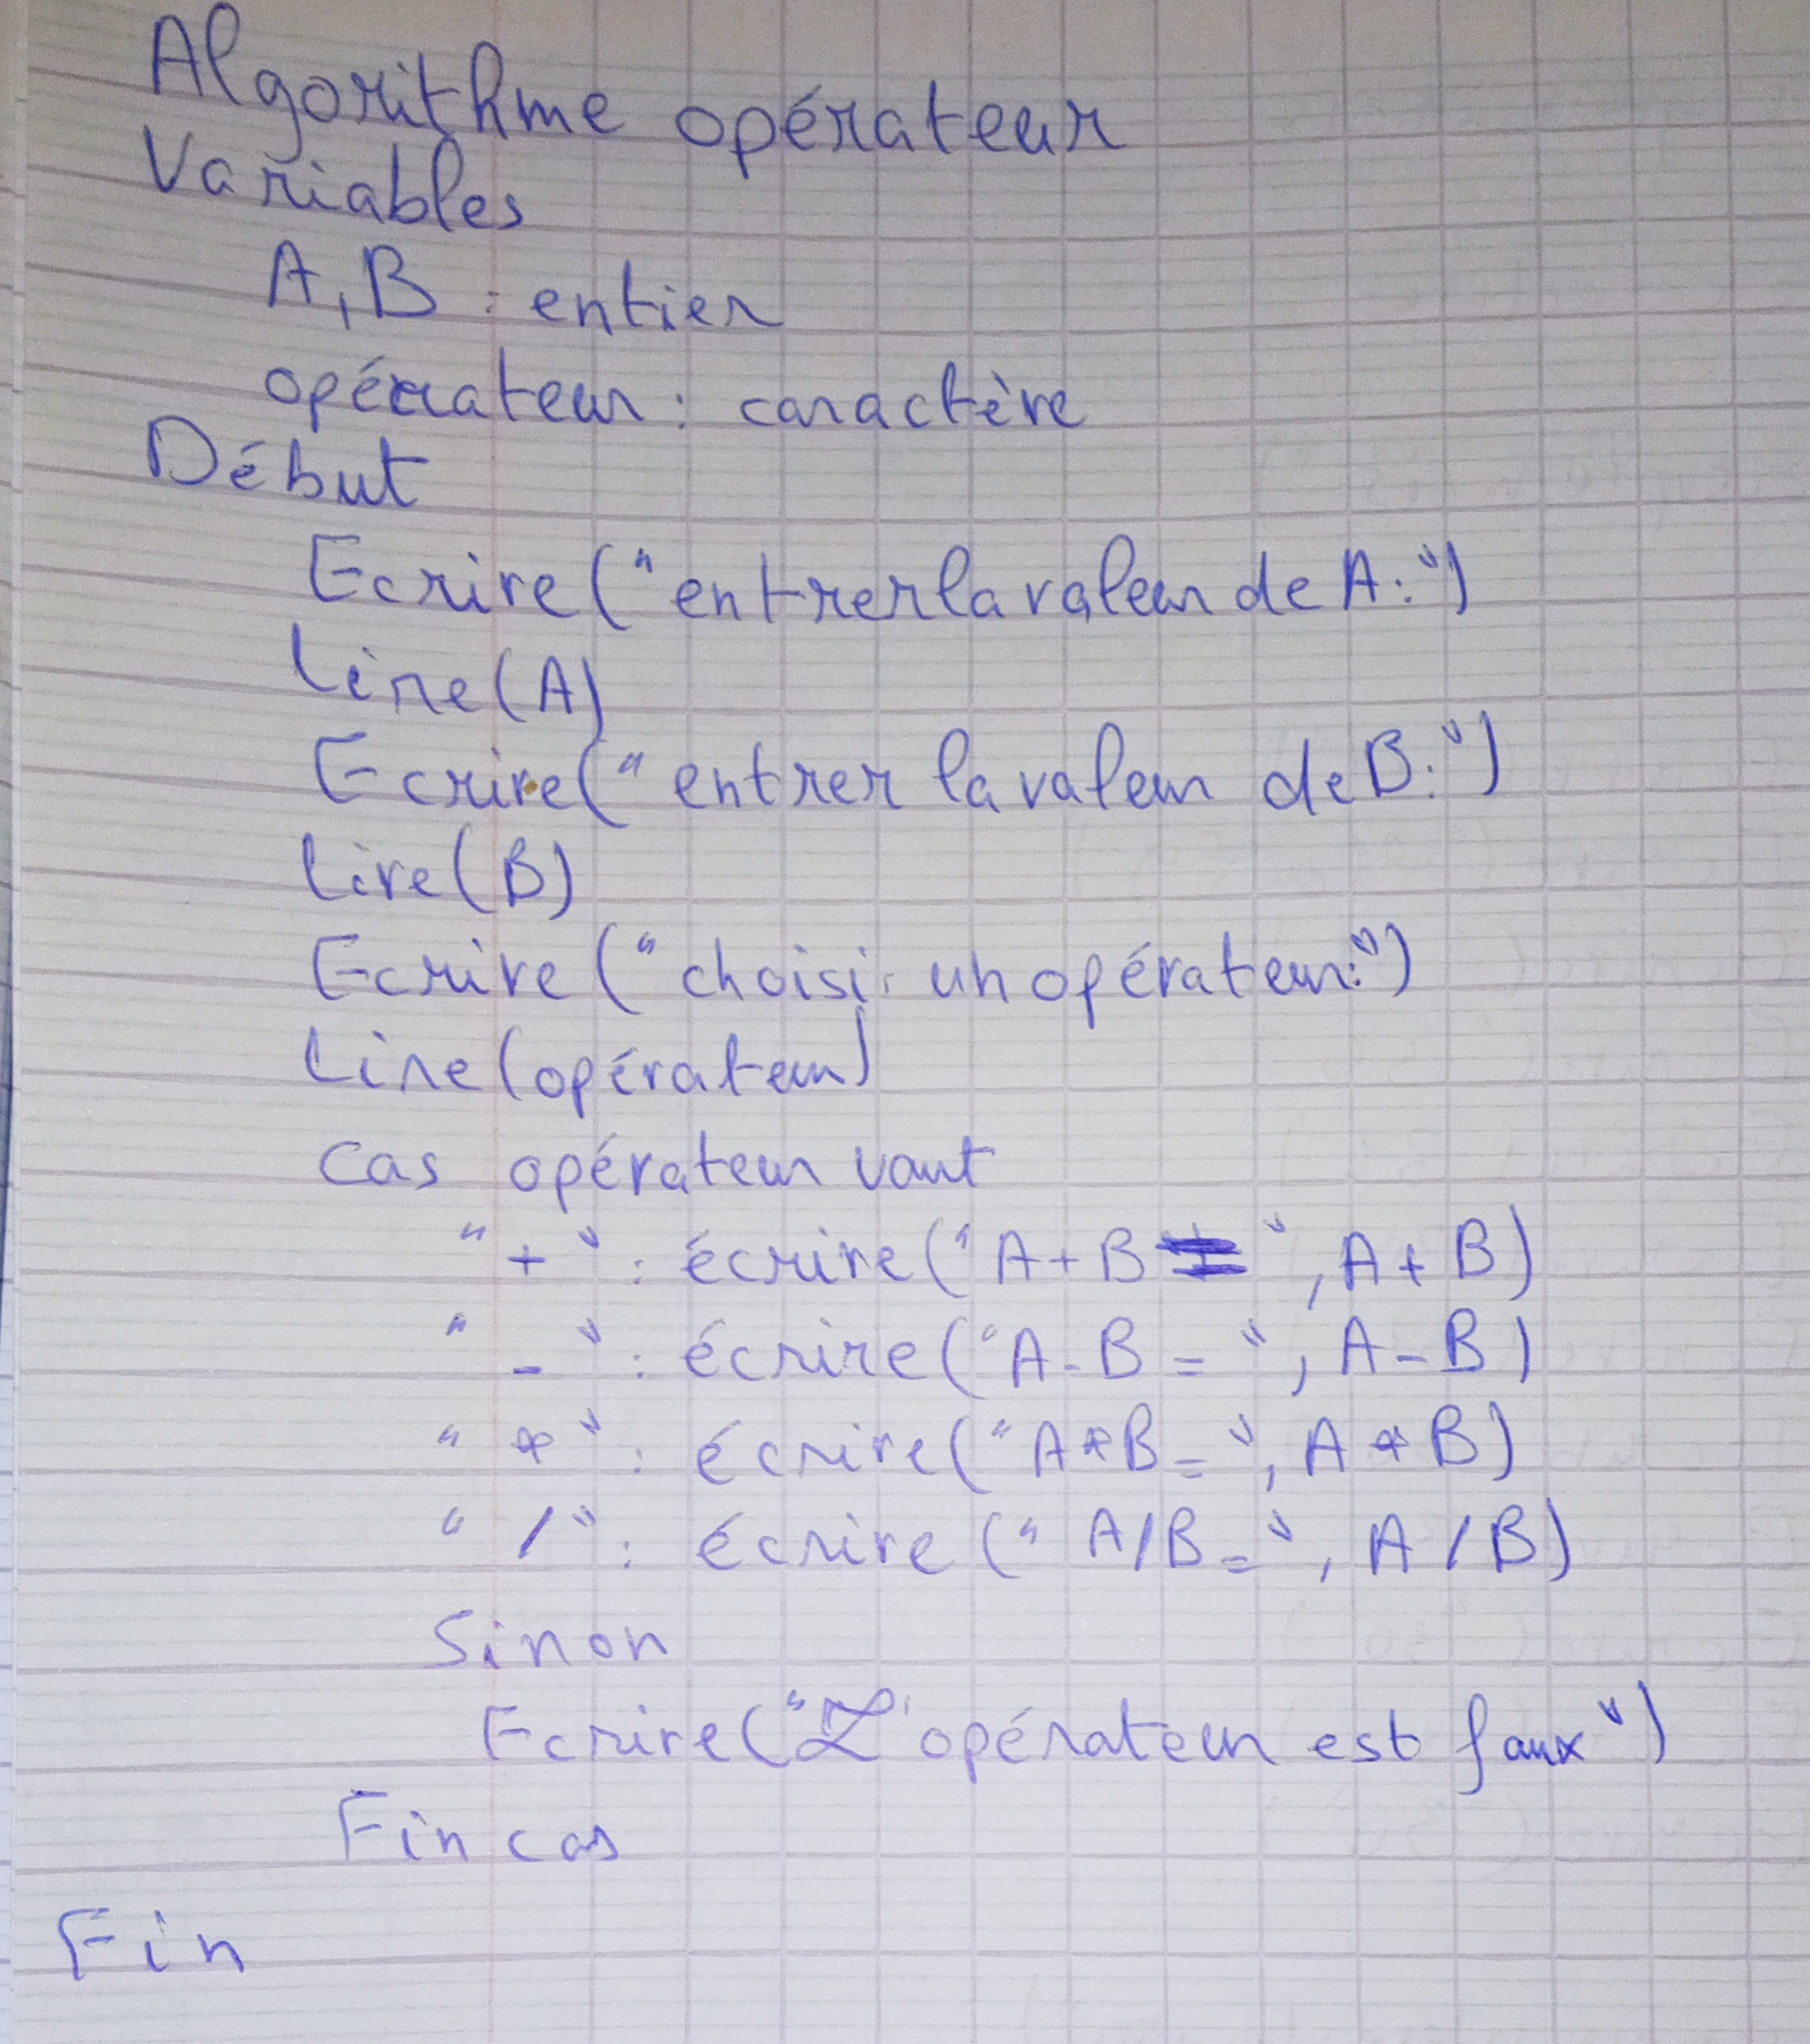 Algorithme opérateur
Variables
A, B : entier
opérateur : caractère
Début
Ecrire ("entrer la valeur de A:")
Lire(A)
Ecrire("entrer la valeur de B:")
Lire(B)
Ecrire ("choisir un opérateur:")
Lire(opérateur)
cas opérateur vaut
"+" : écrire("A+B =", A+B)
"-" : écrire("A-B = ", A-B)
"*" : écrire("A*B=", A*B)
"/" : écrire ("A/B=", A/B)
Sinon
Ecrire("L'opérateur est faux")
Fin cas
Fin